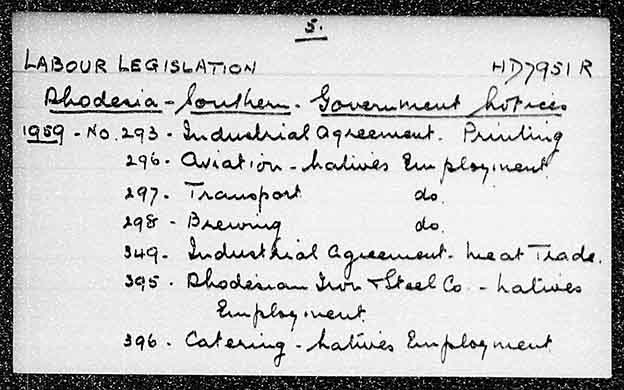 5.
LABOUR LEGISLATION HD7951 R
Rhodesia - Southern - Government Notices
1959 - No. 293 - Industrial Agreement. Printing
296 - Aviation - Natives Employment
297 - Transport do.
298 - Brewing do.
349 - Industrial Agreement - Meat Trade.
395 - Rhodesian Iron & Steel Co. - Natives
Employment
396 - Catering - Natives Employment